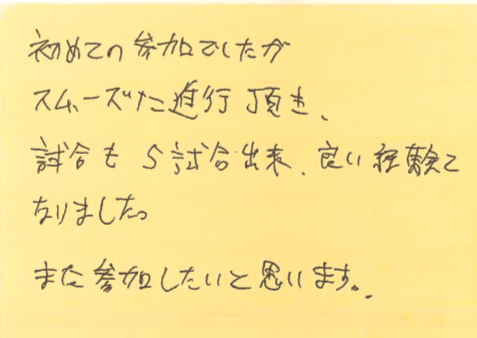 初めての参加でしたが
スムーズに進行頂き、
試合も5試合出来、良い経験と
なりました。
また参加したいと思います。